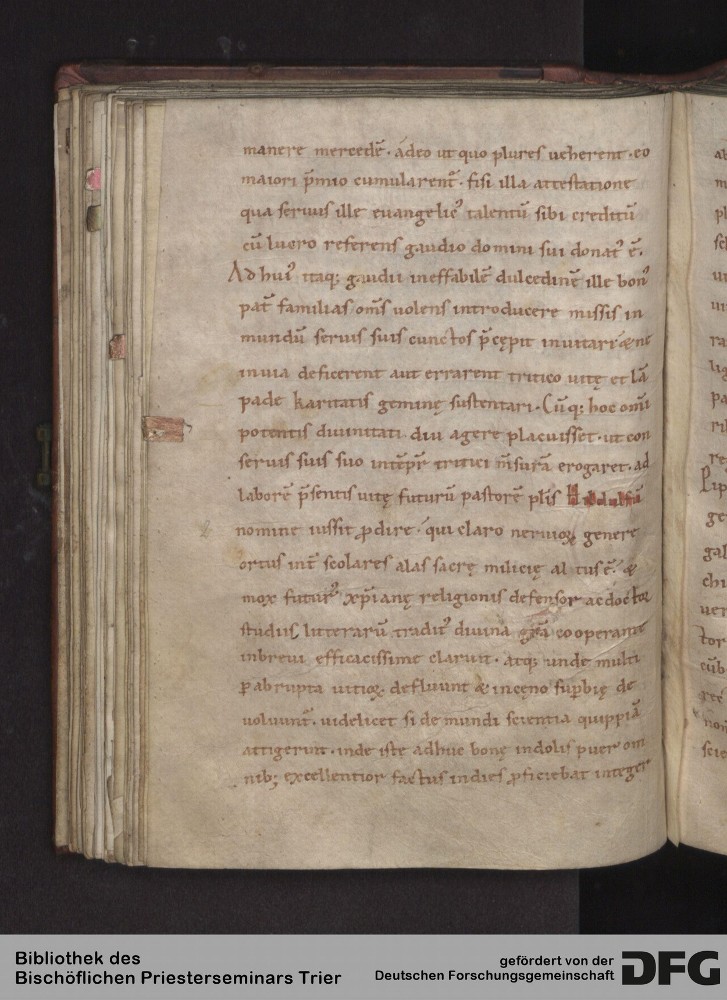 manere mercedē· adeo ut quo plures ueherent· eo
maiori p̄mio cumularent᷒· fisi illa attestatione
qua seruus ille euangelic᷒ talentū sibi creditū
cū lucro referens gaudio domini sui donat᷒ ē·
Ad hui᷒ itaq; gaudii ineffabilē dulcedinē ille bon᷒
pat̄ familias om̄s uolens introducere missis in
mundū seruis suis cunctos p̄cępit inuitari & ne
in uia deficerent aut errarent tritico uitę et lā
pade karitatis geminę sustentari· Cūq; hoc om̄i
potentis diuinitati diu agere placuisset· ut con
seruis suis suo intēpr̄ tritici m̄surā erogaret· ad
laborē p̄sentis uitę futurū pastorē plis Hildulfū
nomine iussit ꝓdire· qui claro neruioꝝ genere
ortus int̄ scolares alas sacrę milicię altus ē· &
mox futur᷒ xp̄ianę religionis defensor ac doctor
studiis litterarū tradit᷒ diuina gr̄a cooperante
inbreui efficacissime claruit· atq; unde multi
ꝑ abrupta uitioꝝ defluunt & in cęno suꝑbię de
uoluunt᷒· uidelicet si de mundi scientia quippiā
attigerint· inde iste adhuc bonę indolis puer om
nib; excellentior factus indies ꝓficiebat integer
Bibliothek des
Bischöflichen Priesterseminars Trier
gefördert von der
Deutschen Forschungsgemeinschaft
DFG